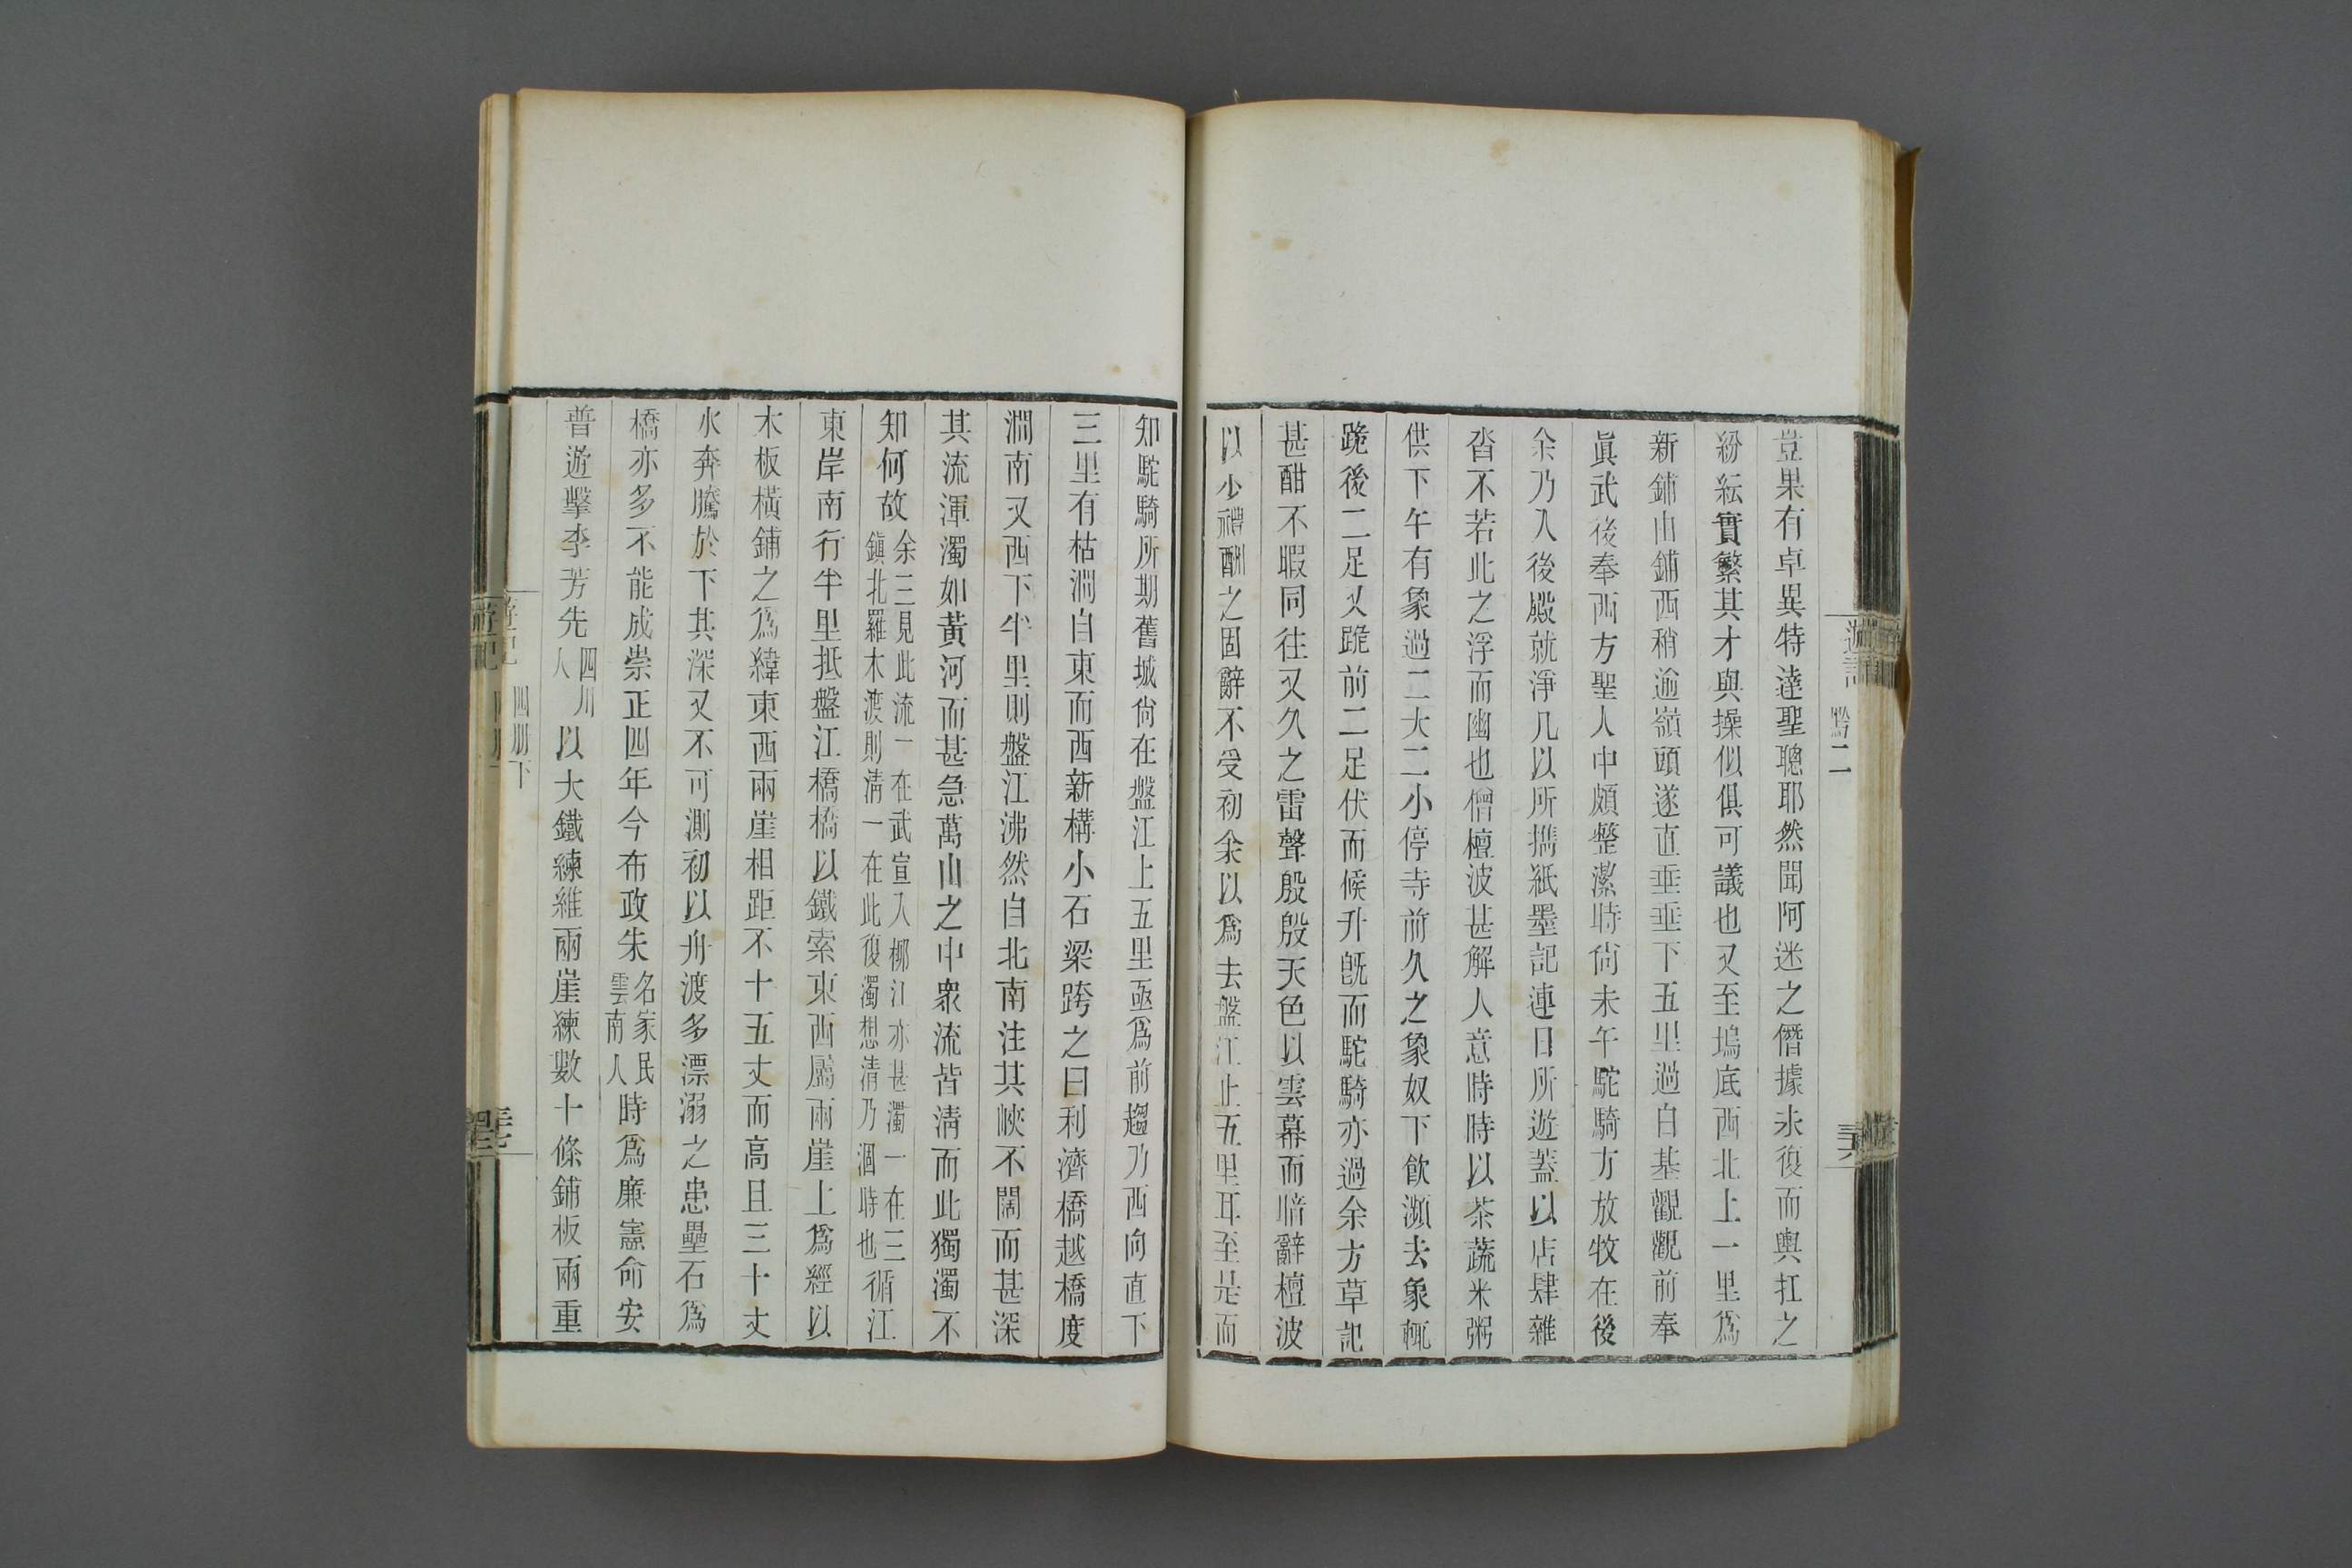 豈果有卓異特達聖聰耶然聞阿迷之僭據未復而輿扛之
紛紜實繁其才與操似俱可議也又至塢底西北上一里爲
新鋪由鋪西稍逾嶺頭遂直垂垂下五里過白基觀觀前奉
眞武後奉西方聖人中頗整潔時尙未午駝騎方放牧在後
余乃入後殿就淨几以所攜紙墨記連日所遊蓋以店肆雜
沓不若此之浮而幽也僧檀波甚解人意時時以茶蔬米粥
供下午有象過二大二小停寺前久之象奴下飮瀕去象輒
跪後二足又跪前二足伏而候升旣而駝騎亦過余方草記
甚酣不暇同往又久之雷聲殷殷天色以雲幕而暗辭檀波
以少禮酬之固辭不受初余以爲去盤江止五里耳至是而
知駝騎所期舊城尙在盤江上五里亟爲前趨乃西向直下
三里有枯澗自東而西新構小石梁跨之曰利濟橋越橋度
澗南又西下半里則盤江沸然自北南注其峽不闊而甚深
其流渾濁如黃河而甚急萬山之中衆流皆清而此獨濁不
知何故余三見此流一在武宣入柳江亦甚濁一在三鎭北羅木渡則清一在此復濁想清乃涸時也循江
東岸南行半里抵盤江橋橋以鐵索東西屬兩崖上爲經以
木板橫鋪之爲緯東西兩崖相距不十五丈而高且三十丈
水奔騰於下其深又不可測初以舟渡多漂溺之患壘石爲
橋亦多不能成崇正四年今布政朱名家民雲南人時爲廉憲命安
普遊擊李芳先四川人以大鐵練維兩崖練數十條鋪板兩重
遊記 四册下